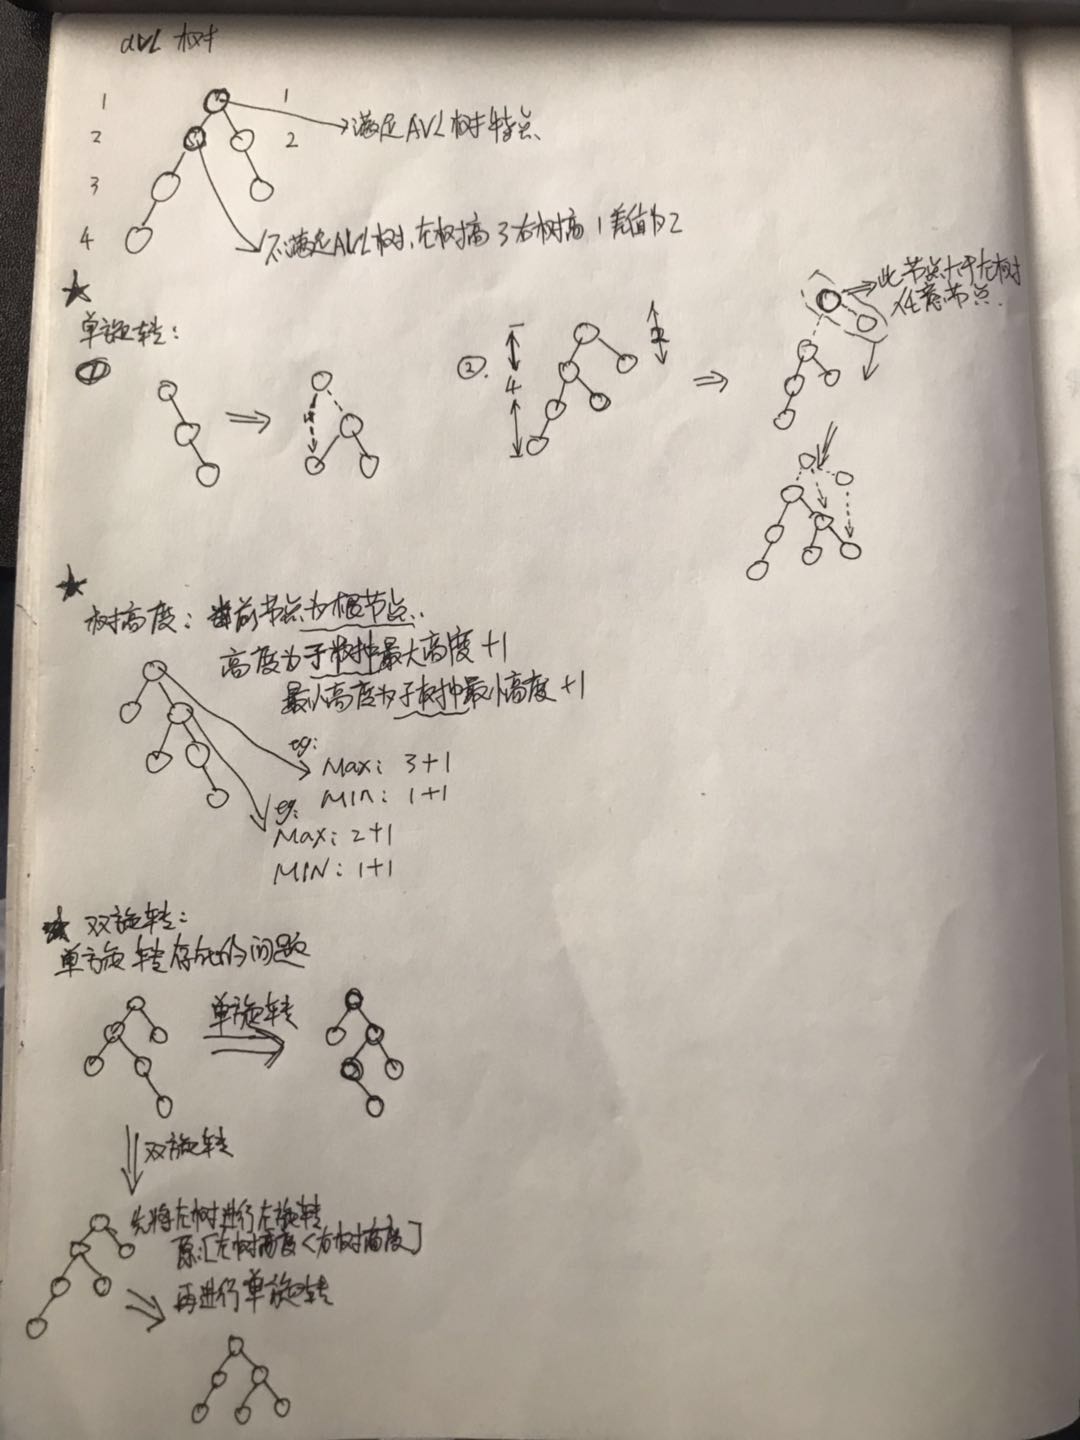 AVL 树
1 1
2 2
3
4
满足AVL树特点
不满足AVL树,左树高3右树高1差值为2
此节点大于左树
任意节点.
单旋转:
①
②.
4
2
树高度: 当前节点为根节点.
高度为子树中最大高度+1
最小高度为子树中最小高度+1
eg:
Max: 3+1
MIN: 1+1
eg:
Max: 2+1
MIN: 1+1
双旋转:
单旋转存在的问题
单旋转
双旋转
先将左树进行左旋转
原:[左树高度<右树高度]
再进行单旋转